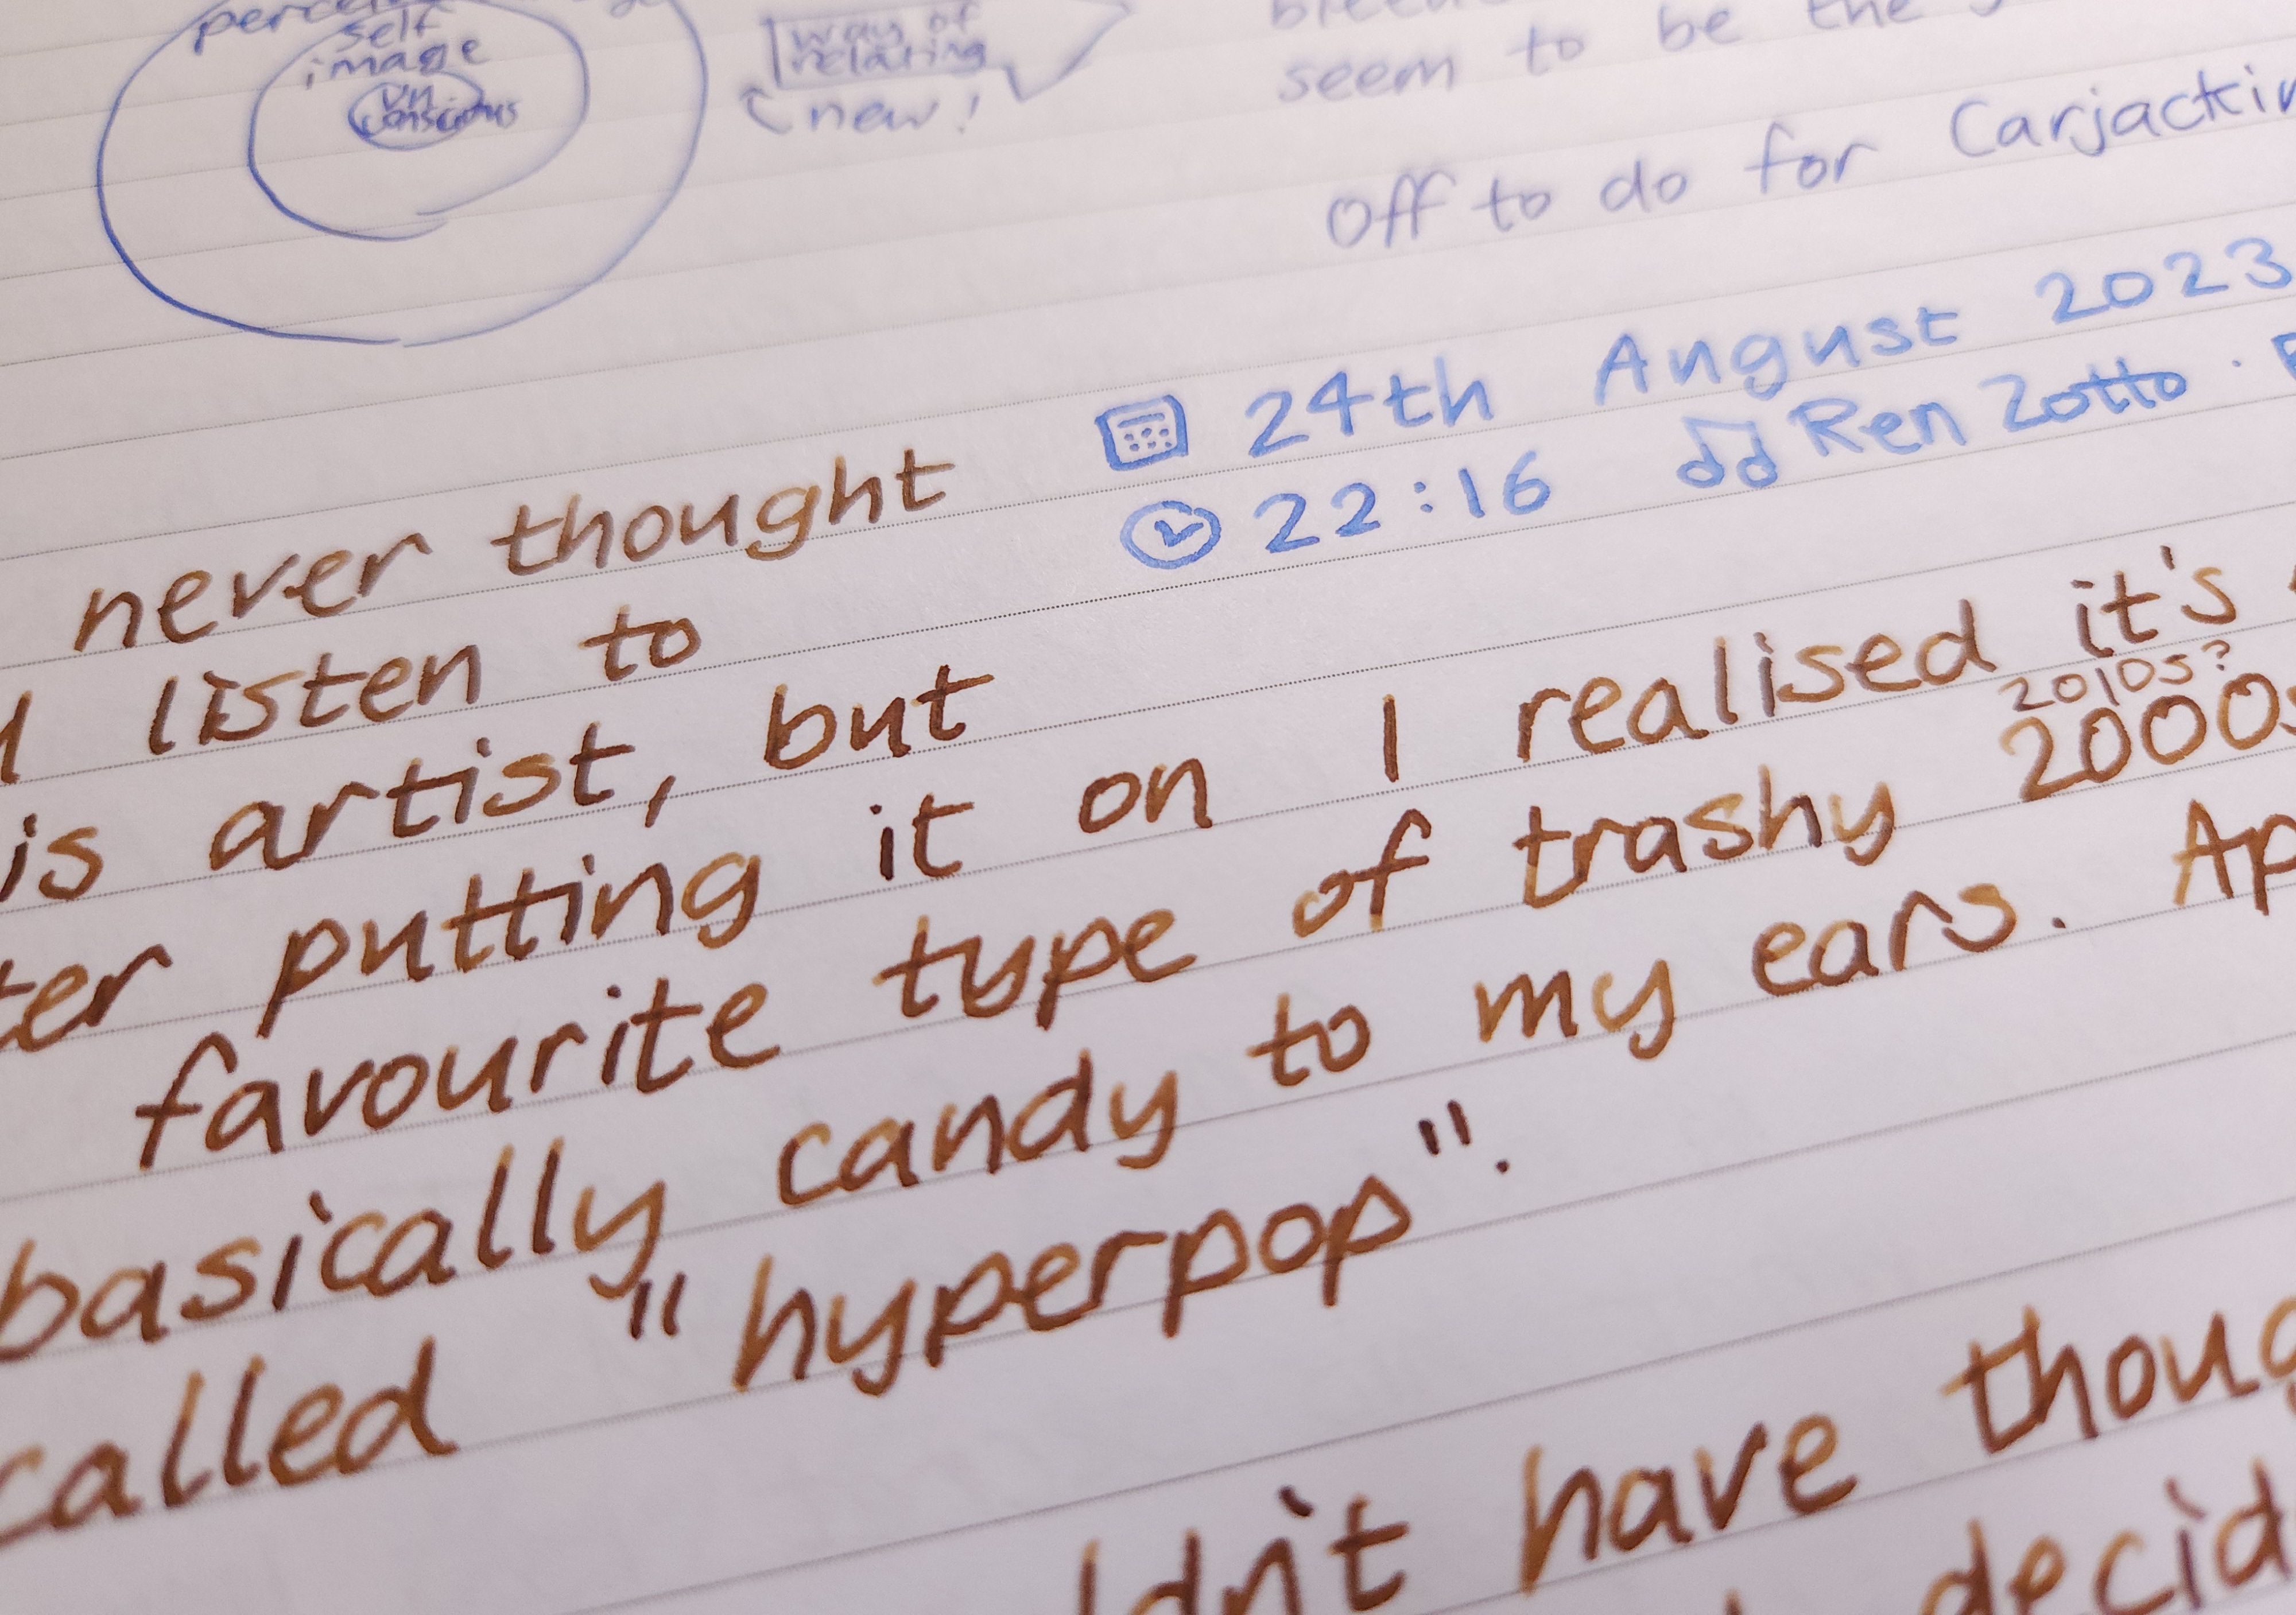 self
image
un
conscious
way of
relating
new!
seem to be the
Off to do for Carjackin
24th August 2023
22:16 Ren Zotto .
never thought
listen to
is artist, but
ter putting it on I realised it's
2010s?
favourite type of trashy 2000s
basically candy to my ears. Ap
called "hyperpop".
ldn't have thoug
decid